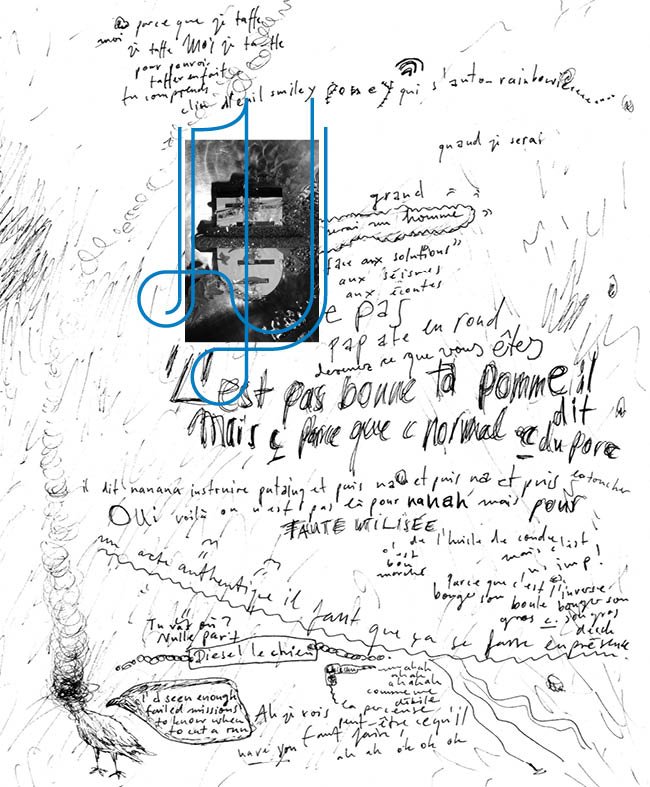 parce que je taffe
moi je taffe Moi je taffe
pour pouvoir
taffer en fait
tu comprends
clin d'œil smiley posey qui s'auto-rainbowise......
quand je serai
grand
serai un homme
"face aux solutions"
aux séismes
aux écoutes
e pas
papate en rond
devenez ce que vous êtes
"C'est pas bonne ta pomme il dit
Mais ç parce que c normal ç du porc
il dit nanana instruire putaing et puis na et puis na et puis
Oui voilà on n'est pas là pour nanah mais pour
FAUTE UTILISÉE
de l'huile de coude c'est
c'est bon marché
mais c'est
n'imp!
un acte authentique il faut que ça se fasse en présence
Parce que c'est l'inverse
bouger son boule bouger son
gros ç son gros
déclic
Tu vas où ?
Nulle part
Diesel le chien
I'd seen enough
failed missions
to know when
to cut a run
nyahah
ahah
ahahah
comme une
débile
Ah je vois la perceuse
peut-être ce qu'il
faut faire !
have you
ah ah oh oh oh